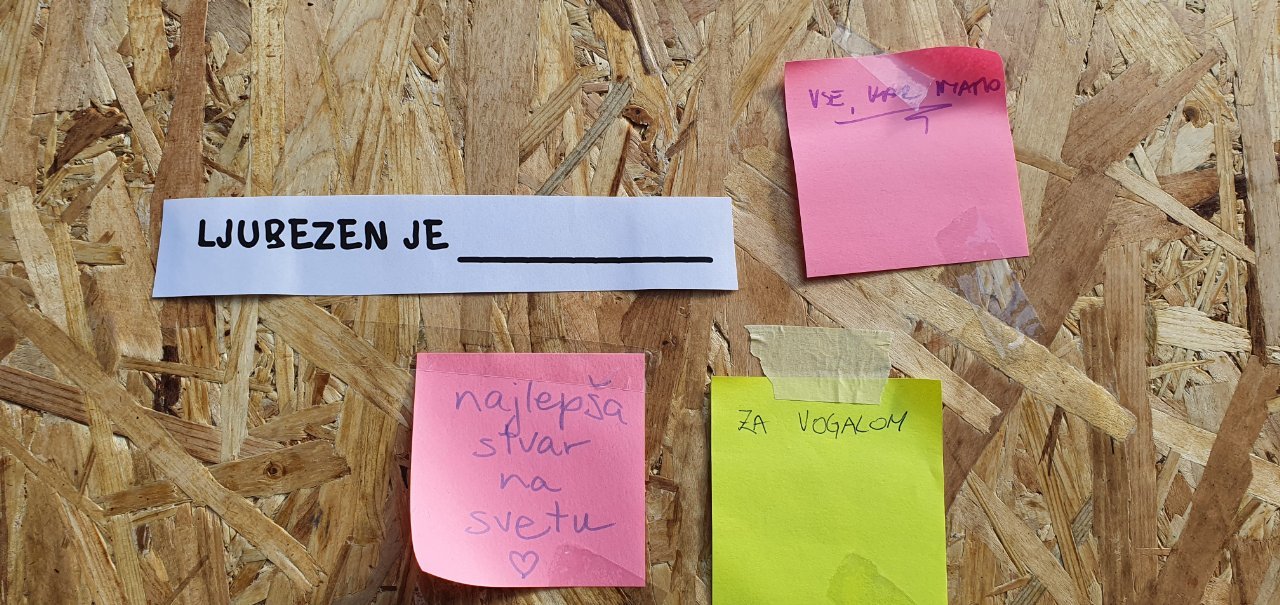 LJUBEZEN JE __________
VSE, KAR IMAMO
najlepša
stvar
na
svetu
♡
ZA VOGALOM